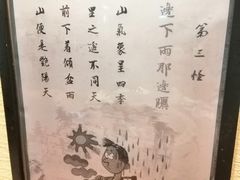 第三怪
這邊下雨那邊曬
山氣聚呈四季
里之遙不同天
前下着傾盆雨
山後是艷陽天